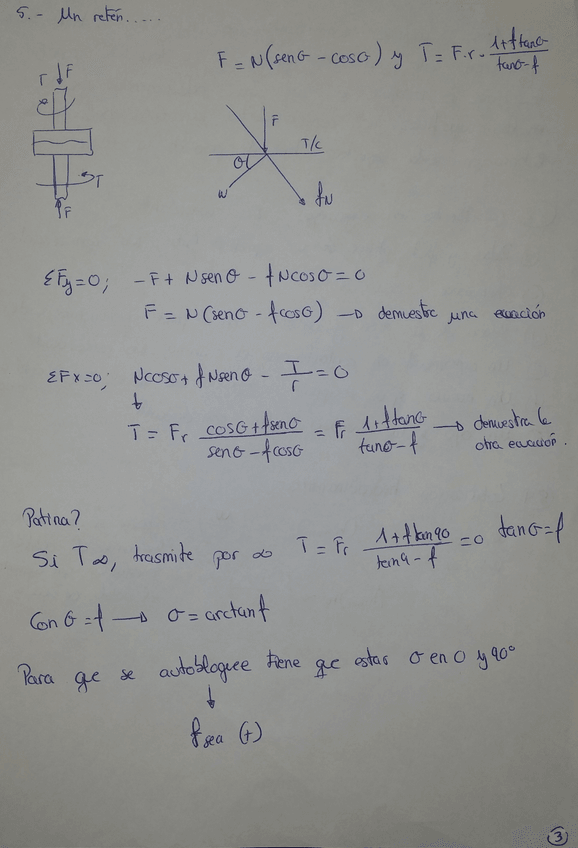 5.- Un retén.....
F = N(senθ - cosθ) y T = F·r · (1+f tanθ)/(tanθ-f)
T F
F
T/c
θ
T
N
fN
F
ΣFy=0; -F + Nsenθ - fNcosθ = 0
F = N(senθ - fcosθ) → demuestra una ecuación
ΣFx=0; Ncosθ + fNsenθ - T/r = 0
↓
T = Fr (cosθ+fsenθ)/(senθ-fcosθ) = Fr (1+f tanθ)/(tanθ-f) → demuestra la
otra ecuación.
Patina?
Si T∞, trasmite por ∞ T = Fr (1+f tan90)/(tan9-f) = 0 tanθ=f
Con θ=f → θ=arctanf
Para que se autobloquee tiene que estar θ en 0 y 90°
↓
f sea (+)
3